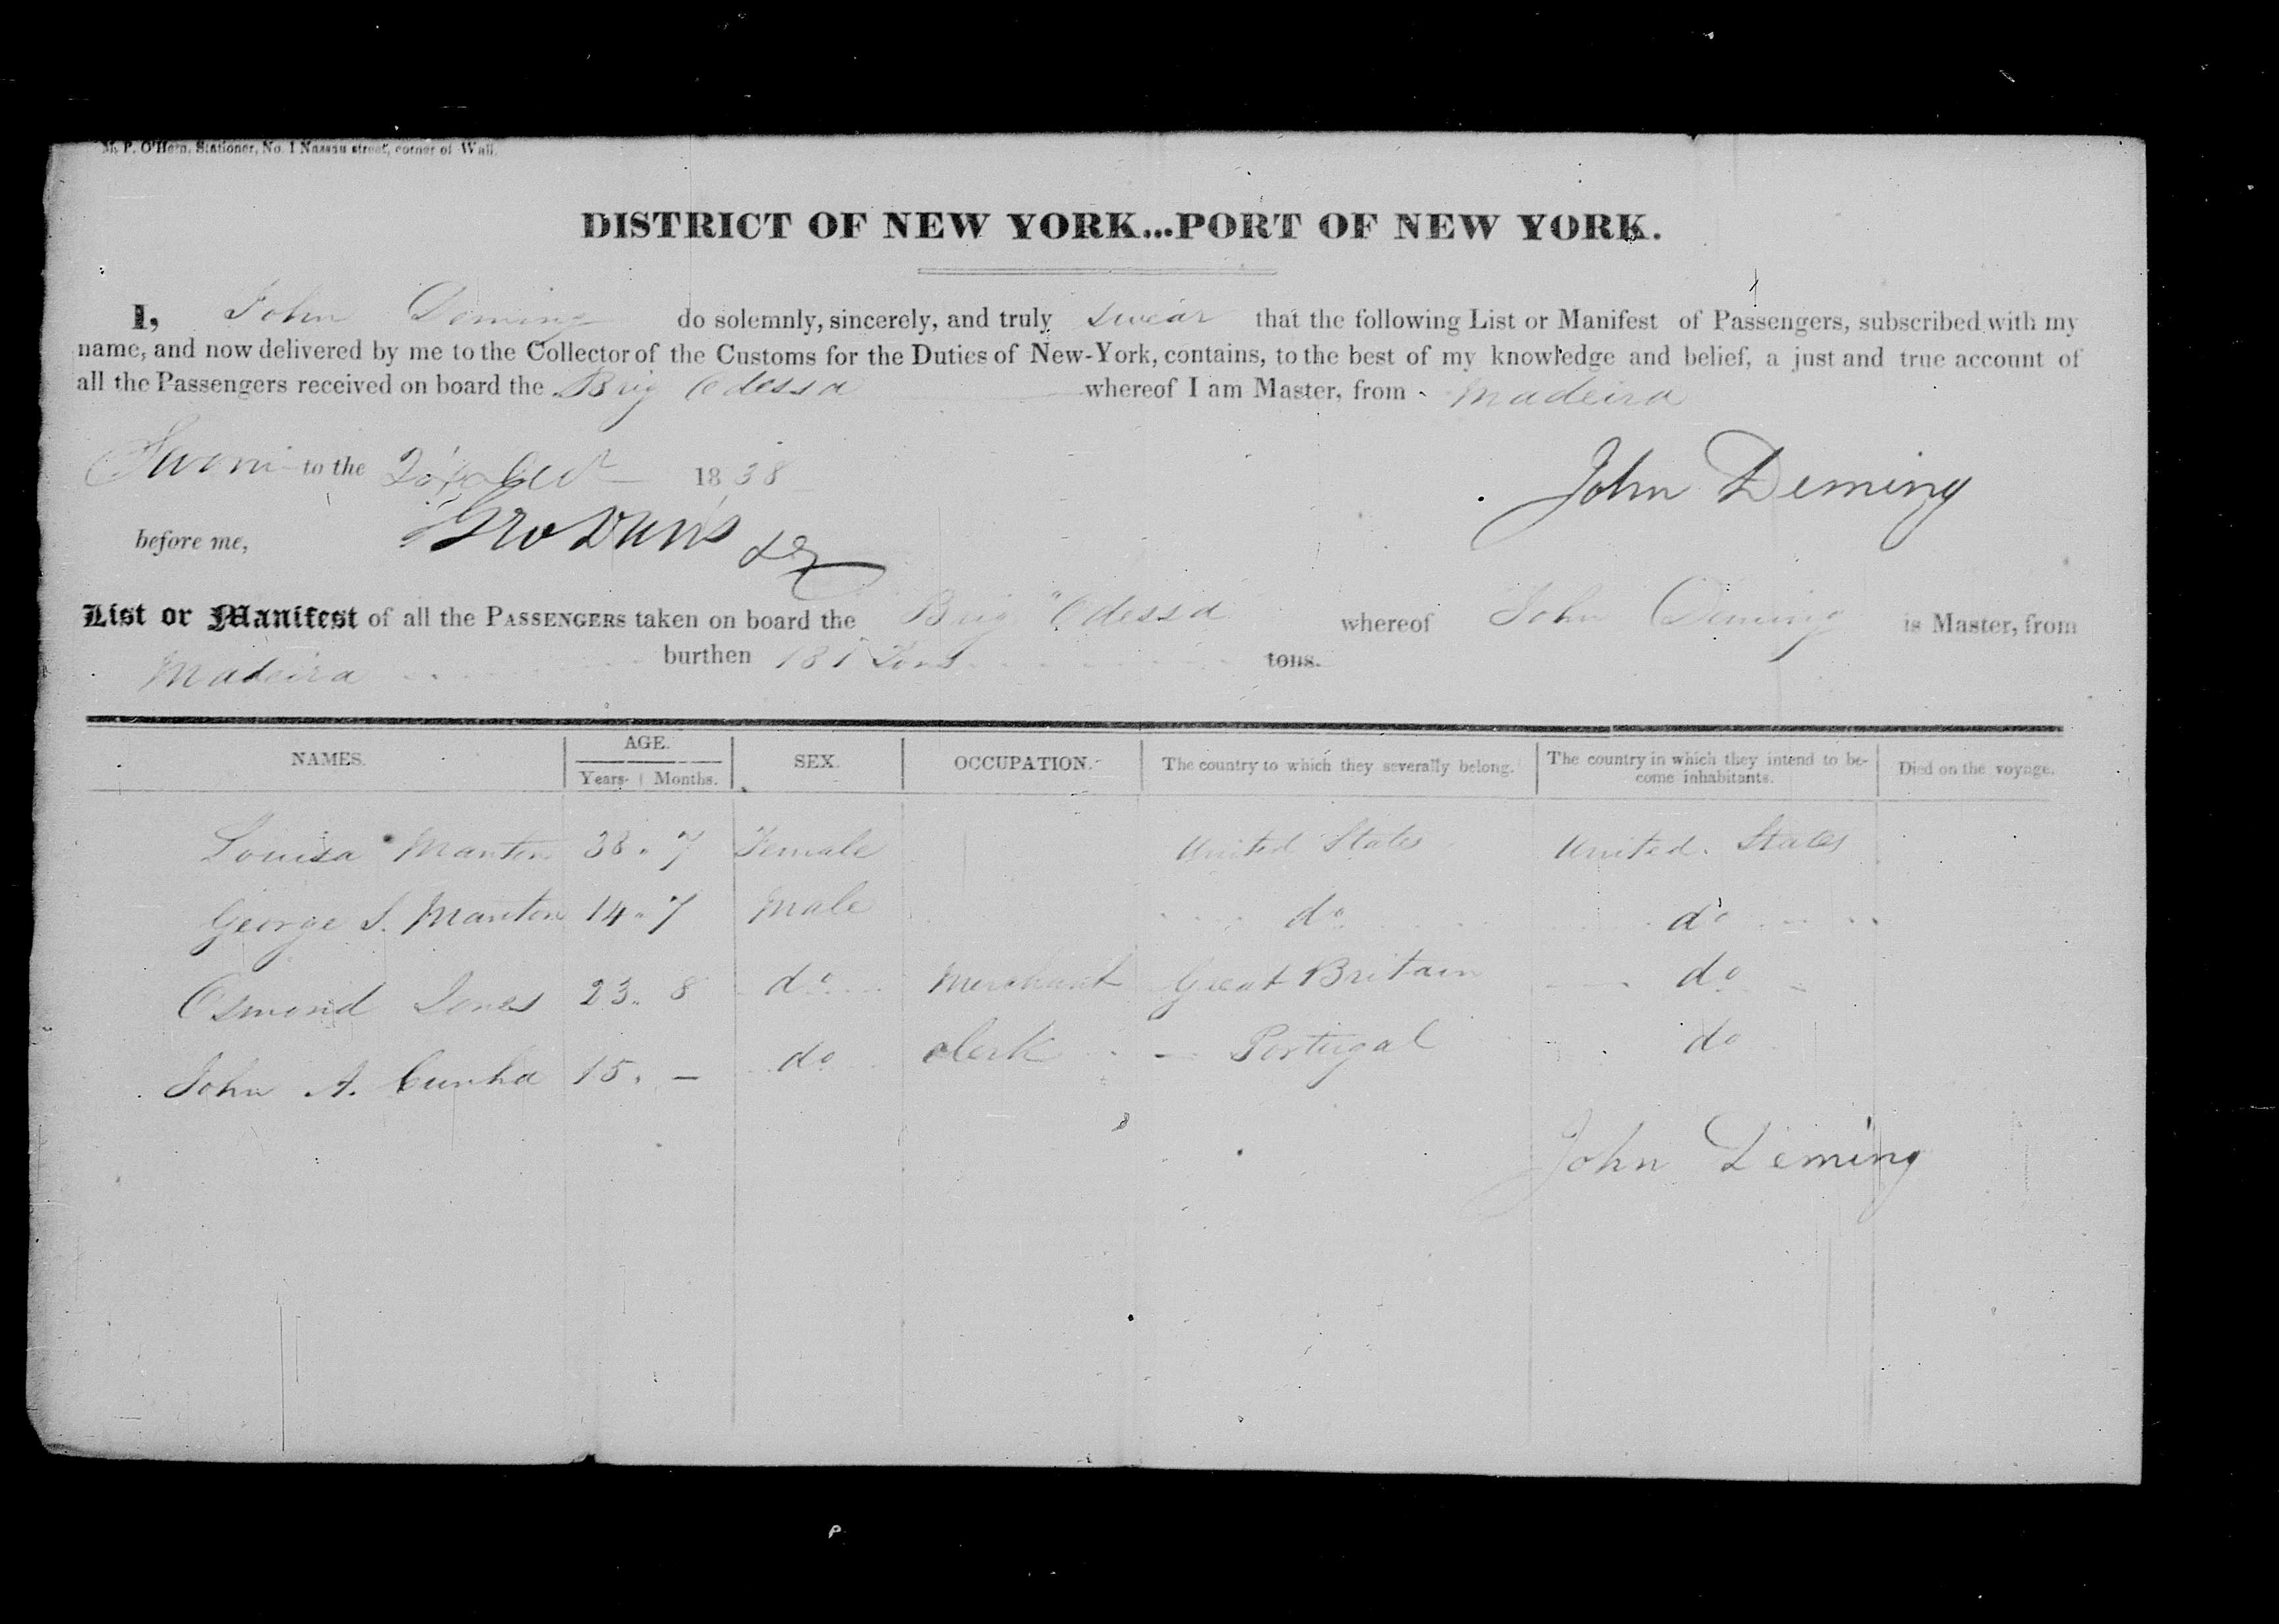 M. P. O'Hern, Stationer, No. 1 Nassau street, corner of Wall.
DISTRICT OF NEW YORK...PORT OF NEW YORK.
I, John Deming do solemnly, sincerely, and truly swear that the following List or Manifest of Passengers, subscribed with my
name, and now delivered by me to the Collector of the Customs for the Duties of New-York, contains, to the best of my knowledge and belief, a just and true account of
all the Passengers received on board the Brig Odessa whereof I am Master, from Madeira
Sworn to the 1838
John Deming
before me,
List or Manifest of all the PASSENGERS taken on board the Brig "Odessa whereof John Deming is Master, from
Madeira burthen 181 Tons tons.
NAMES. AGE. SEX. OCCUPATION. The country to which they severally belong. The country in which they intend to be- Died on the voyage.
Years. Months. come inhabitants.
Louisa Manton 38. 7 Female United States United States
George S. Manton 14. 7 Male do do
Osmond Jones 23. 8 do Merchant Great Britain do
John A. Cunha 15. — do Clerk — Portugal do
John Deming